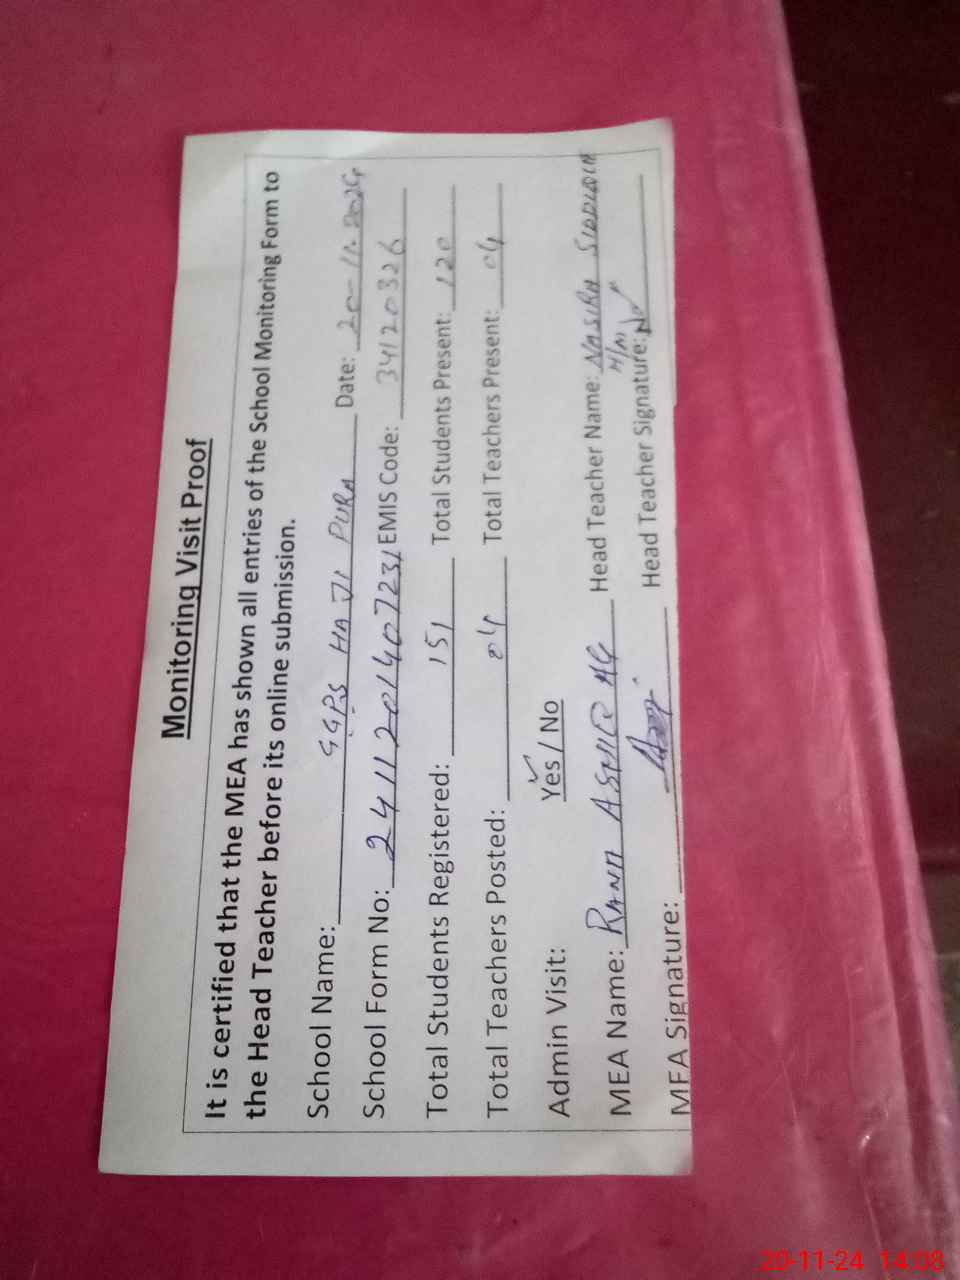 Monitoring Visit Proof
It is certified that the MEA has shown all entries of the School Monitoring Form to
the Head Teacher before its online submission.
School Name: GGPS HAJI PURA Date: 20-11-2024
School Form No: 2411201407231 EMIS Code: 34120326
Total Students Registered: 151 Total Students Present: 120
Total Teachers Posted: 04 Total Teachers Present: 04
Admin Visit: Yes / No
MEA Name: RANA Head Teacher Name: NASIRA SIDDIQUE
H/M
MEA Signature: Head Teacher Signature:
20-11-24 14:08